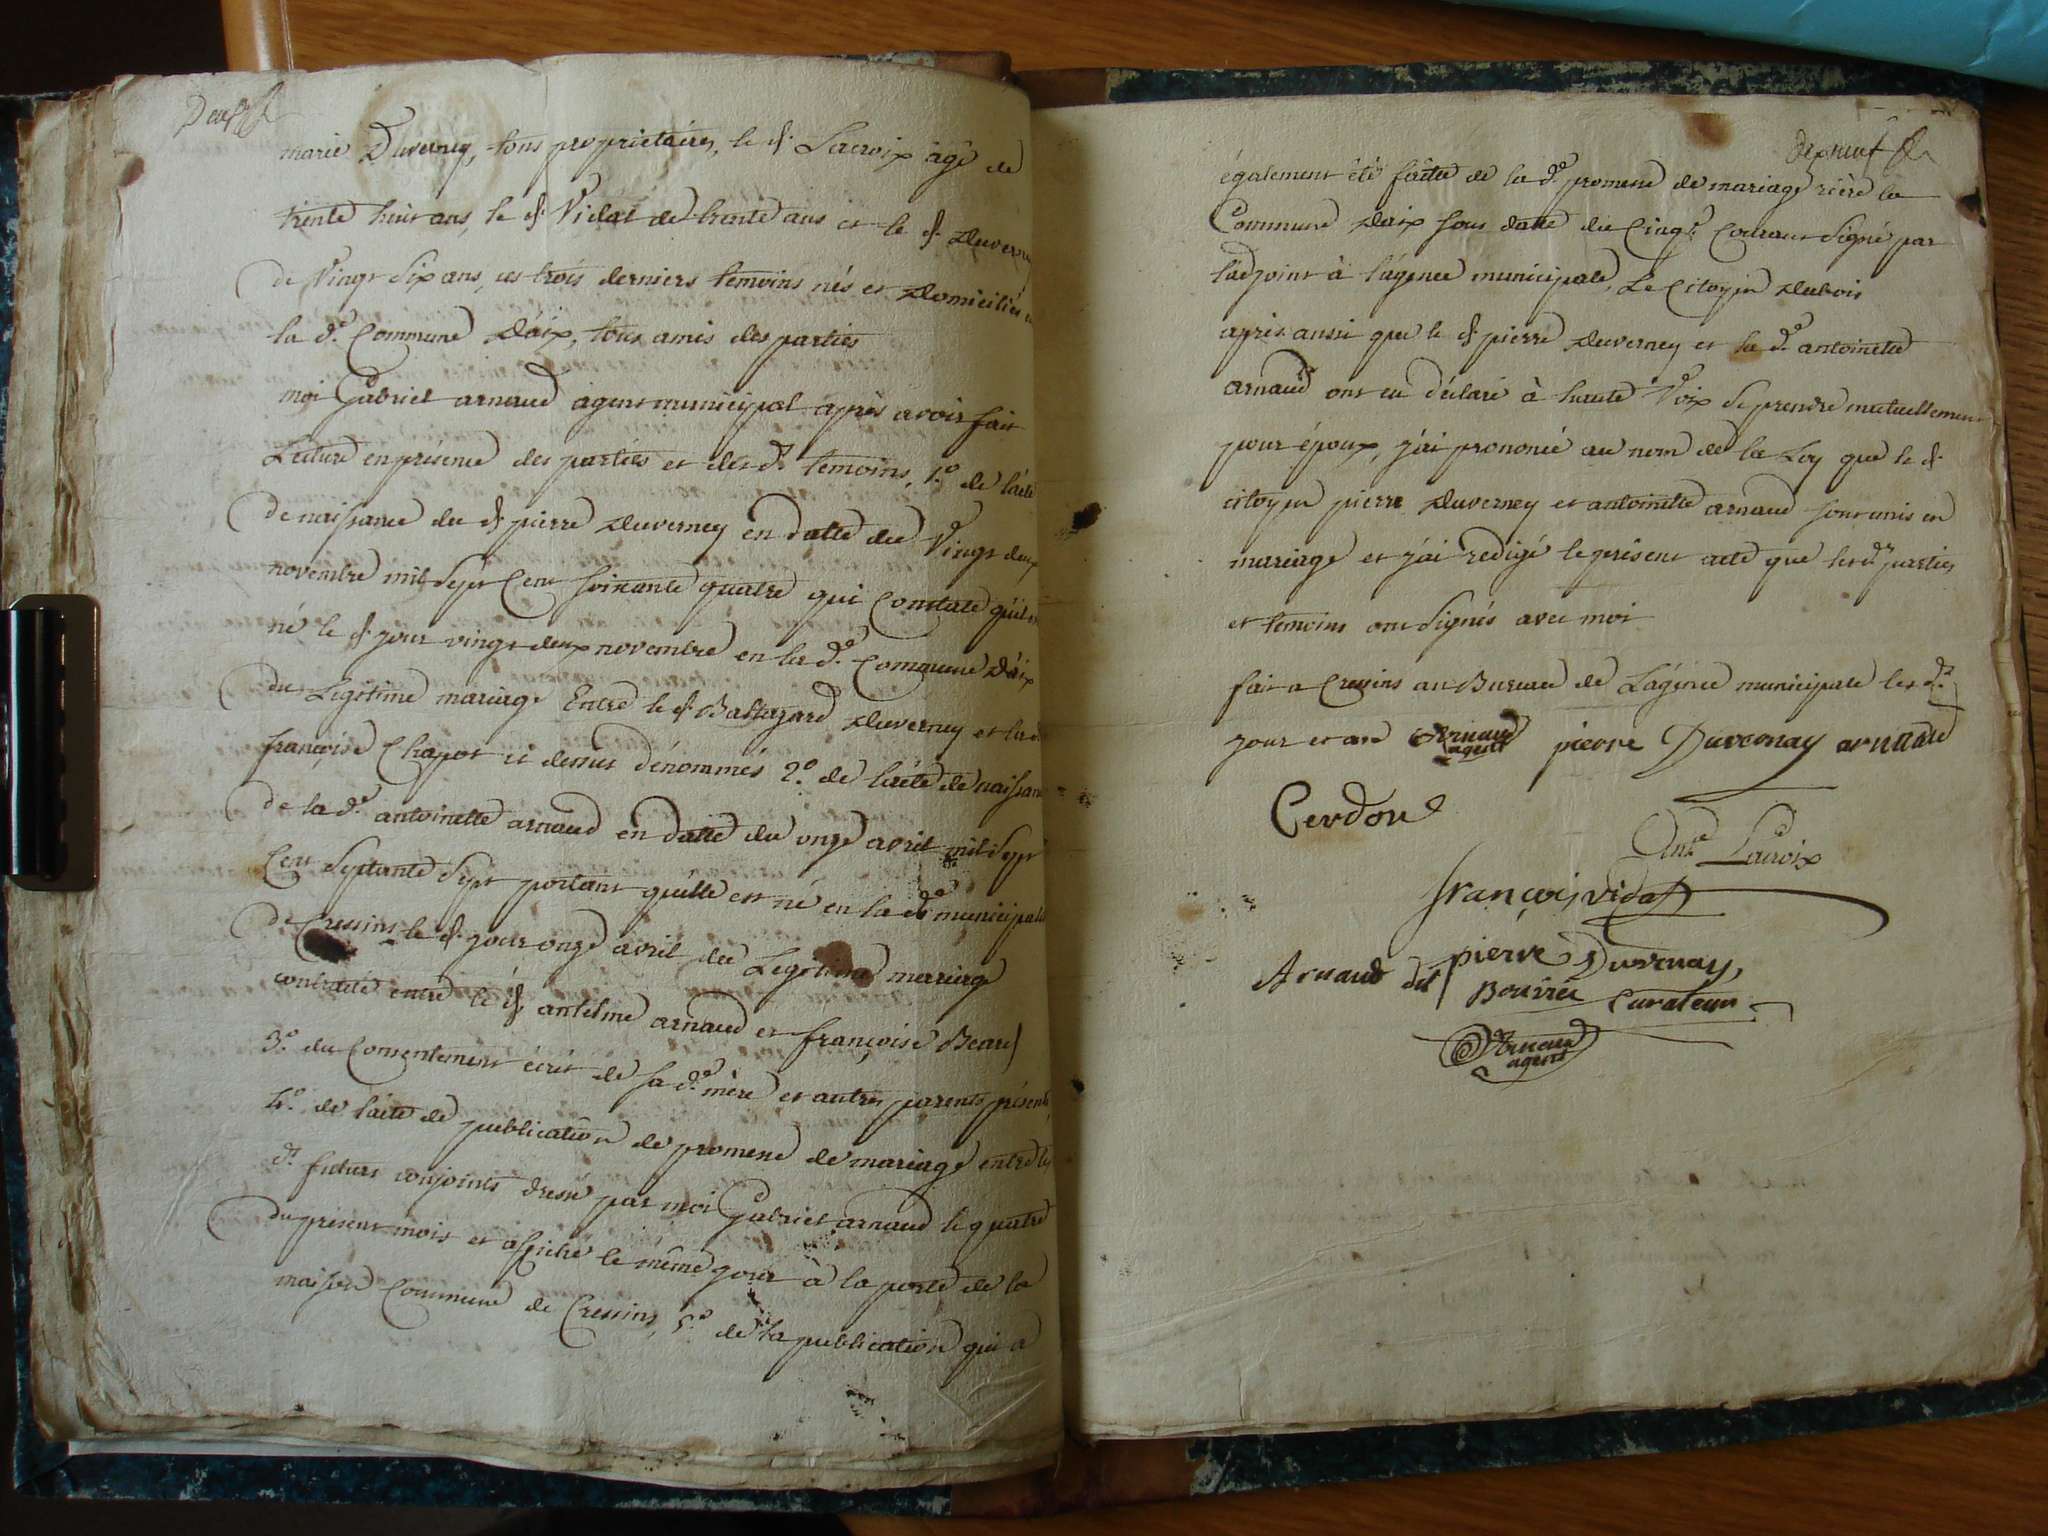 marie Duverney, tous propriétaires, le d. Lacroix agé de
trente huit ans, le d. Vidal de trente ans et le d. Duverney
de vingt six ans, ces trois derniers temoins nés et domiciliés
la de. Commune Daix, tous amis des parties
moi Gabriel arnaud agent municipal après avoir fait
Lecture en présence des parties et des ds. temoins, 1o. de l'acte
de naissance du d. pierre Duverney en datte du vingt deux
novembre mil sept Cent soixante quatre qui Constate qu'il
né le d. jour vingt deux novembre en la de. Commune Daix
du Legitime mariage Entre le d. Baltazard Duverney et la d.
françoise Chapot ci dessus dénommés 2o. de l'acte de naissance
de la de. antoinette arnaud en datte du onze avril mil sept
Cent Septante Sept portant qu'elle est né en la de. municipalité
de Cressins le d. jour onze avril du Legitime mariage
contracté entre le d. antelme arnaud et françoise Beaud
3o. du Consentement écrit de sa de. mère et autres parents présents
4o. de l'acte de publication de promesse de mariage entre les
ds. futurs conjoints dressé par moi Gabriel arnaud le quatre
du présent mois et affiché le même jour à la porte de la
maison Commune de Cressins, 5o. de la publication qui a
dixneuf
également été faitte de la de. promesse de mariage rière la
Commune daix sous datte du Cinq Courant Signé par
ladjoint à l'agence municipale, Le Citoyen Dubois
après aussi que le d. pierre Duverney et la de. antoinette
arnaud ont eu déclaré à haute Voix se prendre mutuellement
pour époux, j'ai prononcé au nom de la Loy que le d.
citoyen pierre Duverney et antoinette arnaud sont unis en
mariage et j'ai redigé le present acte que lesds. parties
et temoins ont Signés avec moi
fait a Cressins au Bureau de Lagence municipale les ds.
jour et an Arnaud agent pierre Duvernay arnaud
Cerdon
Ant. Lacroix
françois vidal
pierre Duvernay
Arnaud dit Bouvier Curateur
Arnaud
agent